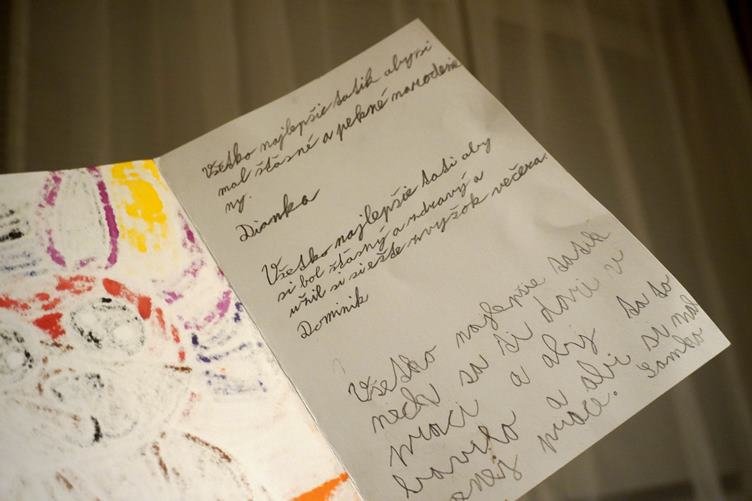 Všetko najlepšie tatik aby si
mal šťasné a pekné narodeni
ny.
Dianka
Všetko najlepšie tati aby
si bol šťasný a zdravý a
užil si si ešte zvyšok večera.
Dominik
Všetko najlepšie tatik
nech sa ti darí v
práci a aby sa to
bavilo a abi si mal
menej práce. Samko